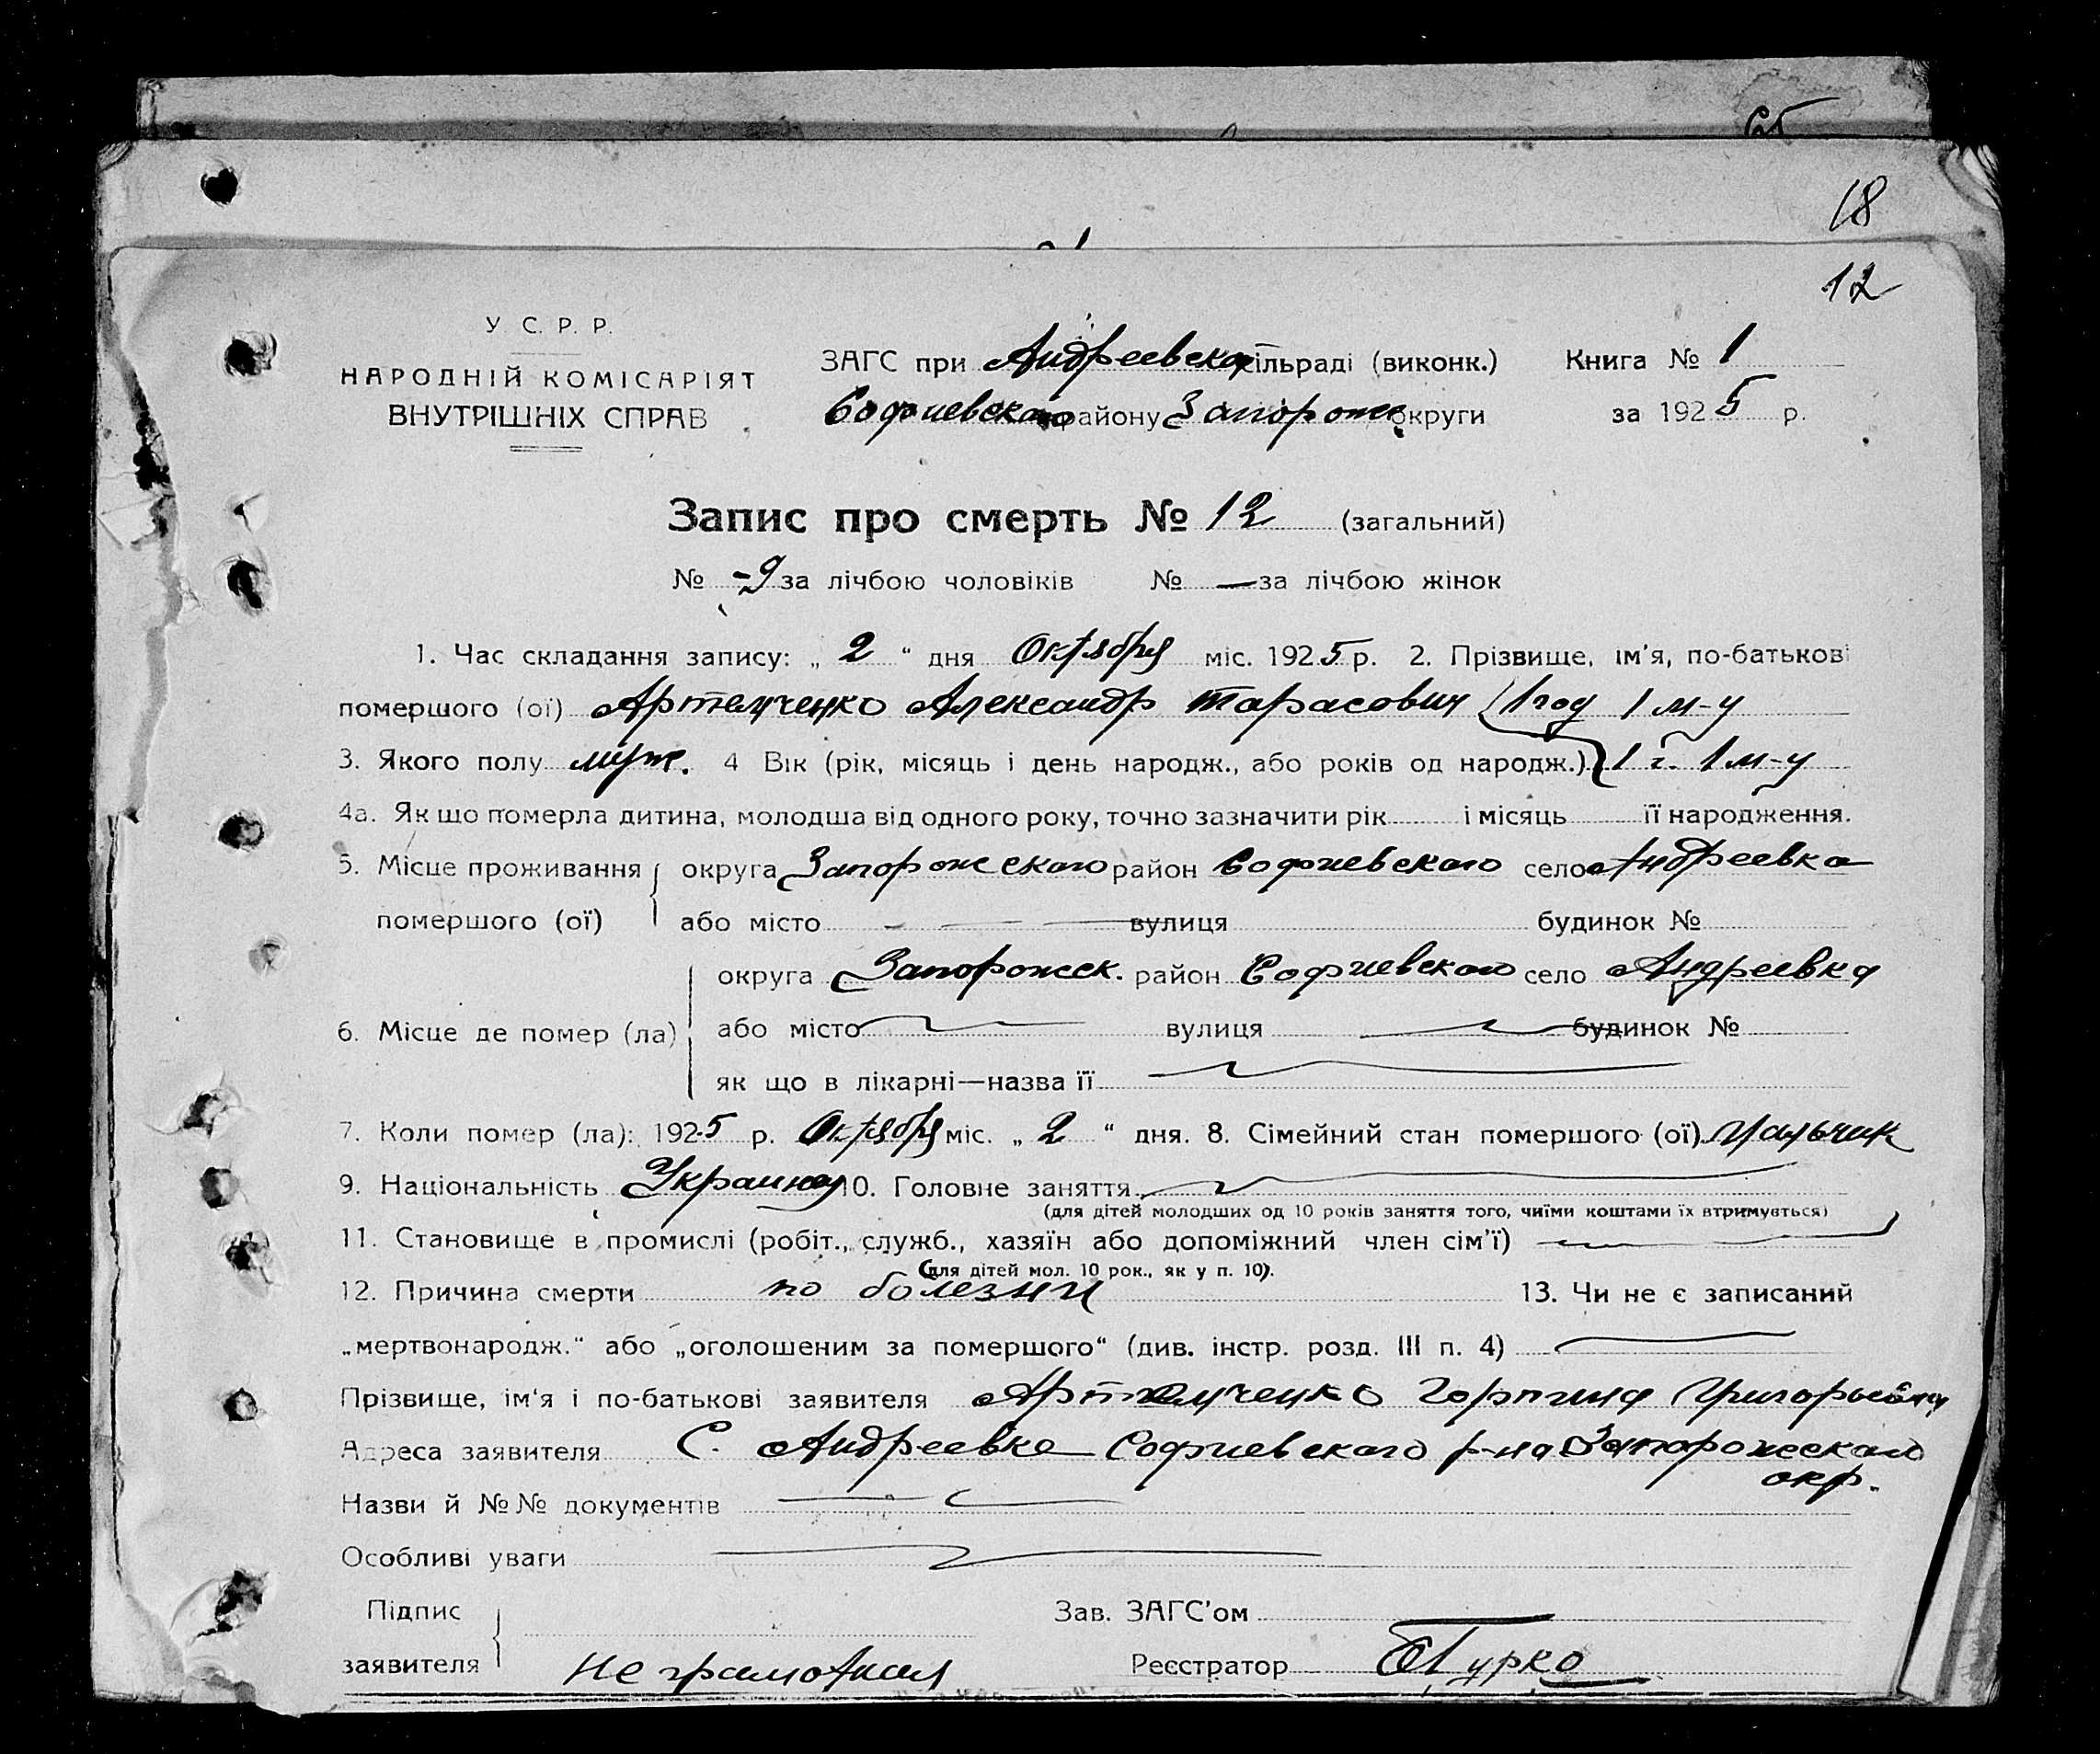 Сб
18
12
У С. Р. Р.
НАРОДНІЙ КОМІСАРІЯТ
ВНУТРІШНІХ СПРАВ
ЗАГС при Андреевской сільраді (виконк.) Книга № 1
Софиевского району Запорожс округи за 1925 р.
Запис про смерть № 12 (загальний)
№ -9 за лічбою чоловіків № — за лічбою жінок
1. Час складання запису: „ 2 “ дня Октября міс. 1925 р. 2. Прізвище, ім'я, по-батькові
помершого (ої) Артемченко Александр Тарасович 1 год 1 м-ц
3. Якого полу муж. 4 Вік (рік, місяць і день народж., або років од народж.) 1 г. 1 м-ц
4а. Як що померла дитина, молодша від одного року, точно зазначити рік і місяць її народження.
5. Місце проживання округа Запорожского район Софиевского село Андреевка
помершого (ої) або місто — — вулиця будинок №
округа Запорожск. район Софиевского село Андреевка
6. Місце де помер (ла) або місто — вулиця — будинок №
як що в лікарні—назва її —
7. Коли помер (ла): 1925 р. Октября міс. „ 2 “ дня. 8. Сімейний стан помершого (ої) мальчик
9. Національність Украинец 10. Головне заняття —
(для дітей молодших од 10 років заняття того, чиїми коштами їх втримується)
11. Становище в промислі (робіт., служб., хазяїн або допоміжний член сім'ї) —
(для дітей мол. 10 рок., як у п. 10).
12. Причина смерти по болезни 13. Чи не є записаний
„мертвонародж.“ або „оголошеним за помершого“ (див. інстр. розд. III п. 4) —
Прізвище, ім'я і по-батькові заявителя Артемченко Горпина Григорьевна
Адреса заявителя С. Андреевка Софиевского р-на Запорожского
окр.
Назви й №№ документів —
Особливі уваги —
Підпис Зав. ЗАГС'ом
заявителя неграмотная Реєстратор Гурко